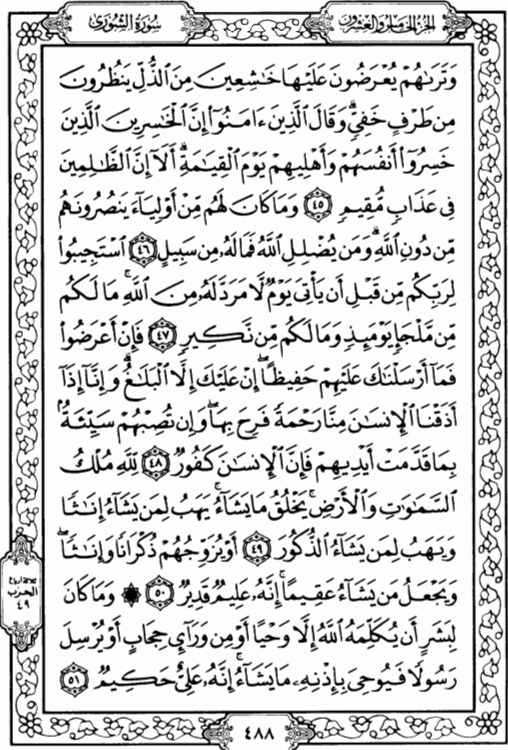 الجزء الخامس والعشرون
سورة الشورى
وَتَرَىٰهُمْ يُعْرَضُونَ عَلَيْهَا خَٰشِعِينَ مِنَ ٱلذُّلِّ يَنظُرُونَ
مِن طَرْفٍ خَفِىٍّ ۗ وَقَالَ ٱلَّذِينَ ءَامَنُوٓا۟ إِنَّ ٱلْخَٰسِرِينَ ٱلَّذِينَ
خَسِرُوٓا۟ أَنفُسَهُمْ وَأَهْلِيهِمْ يَوْمَ ٱلْقِيَٰمَةِ ۗ أَلَآ إِنَّ ٱلظَّٰلِمِينَ
فِى عَذَابٍ مُّقِيمٍ ٤٥ وَمَا كَانَ لَهُم مِّنْ أَوْلِيَآءَ يَنصُرُونَهُم
مِّن دُونِ ٱللَّهِ ۗ وَمَن يُضْلِلِ ٱللَّهُ فَمَا لَهُۥ مِن سَبِيلٍ ٤٦ ٱسْتَجِيبُوا۟
لِرَبِّكُم مِّن قَبْلِ أَن يَأْتِىَ يَوْمٌ لَّا مَرَدَّ لَهُۥ مِنَ ٱللَّهِ ۚ مَا لَكُم
مِّن مَّلْجَإٍ يَوْمَئِذٍ وَمَا لَكُم مِّن نَّكِيرٍ ٤٧ فَإِنْ أَعْرَضُوا۟
فَمَآ أَرْسَلْنَٰكَ عَلَيْهِمْ حَفِيظًا ۖ إِنْ عَلَيْكَ إِلَّا ٱلْبَلَٰغُ ۗ وَإِنَّآ إِذَآ
أَذَقْنَا ٱلْإِنسَٰنَ مِنَّا رَحْمَةً فَرِحَ بِهَا ۖ وَإِن تُصِبْهُمْ سَيِّئَةٌۢ
بِمَا قَدَّمَتْ أَيْدِيهِمْ فَإِنَّ ٱلْإِنسَٰنَ كَفُورٌ ٤٨ لِّلَّهِ مُلْكُ
ٱلسَّمَٰوَٰتِ وَٱلْأَرْضِ ۚ يَخْلُقُ مَا يَشَآءُ ۚ يَهَبُ لِمَن يَشَآءُ إِنَٰثًا
وَيَهَبُ لِمَن يَشَآءُ ٱلذُّكُورَ ٤٩ أَوْ يُزَوِّجُهُمْ ذُكْرَانًا وَإِنَٰثًا ۖ
وَيَجْعَلُ مَن يَشَآءُ عَقِيمًا ۚ إِنَّهُۥ عَلِيمٌ قَدِيرٌ ٥٠ ۞ وَمَا كَانَ
لِبَشَرٍ أَن يُكَلِّمَهُ ٱللَّهُ إِلَّا وَحْيًا أَوْ مِن وَرَآئِ حِجَابٍ أَوْ يُرْسِلَ
رَسُولًا فَيُوحِىَ بِإِذْنِهِۦ مَا يَشَآءُ ۚ إِنَّهُۥ عَلِىٌّ حَكِيمٌ ٥١
الحزب
٤٩
٤٨٨